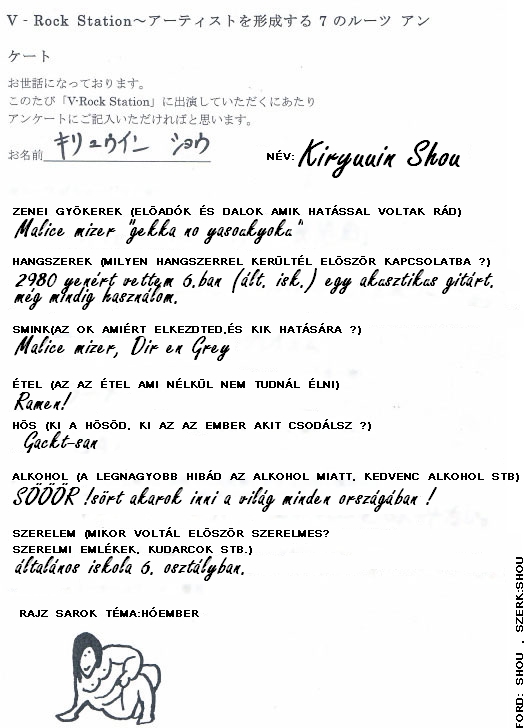 V‐Rock Station～アーティストを形成する 7 のルーツ アン
ケート
お世話になっております。
このたび「V-Rock Station」に出演していただくにあたり
アンケートにご記入いただければと思います。
お名前 キリュウイン ショウ
NÉV: Kiryuuin Shou
ZENEI GYÖKEREK (ELÖADÓK ÉS DALOK AMIK HATÁSSAL VOLTAK RÁD)
Malice mizer "gekka no yasoukyoku"
HANGSZEREK (MILYEN HANGSZERREL KERÜLTÉL ELÖSZÖR KAPCSOLATBA ?)
2980 yenért vettem 6.ban (ált. isk.) egy akusztikus gitárt.
még mindig használom.
SMINK(AZ OK AMIÉRT ELKEZDTED,ÉS KIK HATÁSÁRA ?)
Malice mizer, Dir en Grey
ÉTEL (AZ AZ ÉTEL AMI NÉLKÜL NEM TUDNÁL ÉLNI)
Ramen!
HÖS (KI A HÖSÖD, KI AZ AZ EMBER AKIT CSODÁLSZ ?)
Gackt-san
ALKOHOL (A LEGNAGYOBB HIBÁD AZ ALKOHOL MIATT, KEDVENC ALKOHOL STB)
SÖÖÖR !sört akarok inni a világ minden országában !
SZERELEM (MIKOR VOLTÁL ELÖSZÖR SZERELMES?
SZERELMI EMLÉKEK, KUDARCOK STB.)
általános iskola 6. osztályban.
RAJZ SAROK TÉMA:HÓEMBER
FORD: SHOU , SZERK:SHOU